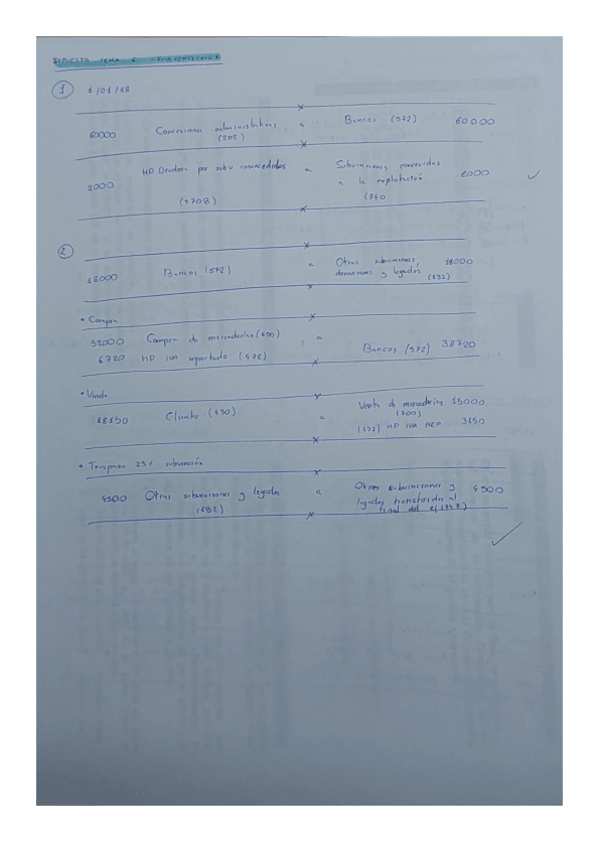 SUPUESTO TEMA 6 SUBVENCIONES
1 1/01/18
60000 Concesiones administrativas a Bancos (572) 60000
(202)
2000 HP Deudora por subv concedidas a Subvenciones concedidas 2000
a la explotación
(4708) (740
2
18000 Bancos (572) a Otras subvenciones, 18000
donaciones y legados (132)
• Compra
32000 Compra de mercaderías (600) a
6720 HP IVA soportado (472) Bancos (572) 38720
• Venta
18150 Clientes (430) a Venta de mercaderías 15000
(700)
(477) HP IVA REP 3150
• Traspaso 25% subvención
4500 Otras subvenciones y legados a Otras subvenciones y 4500
legados transferidos al
(132) final del ej (747)